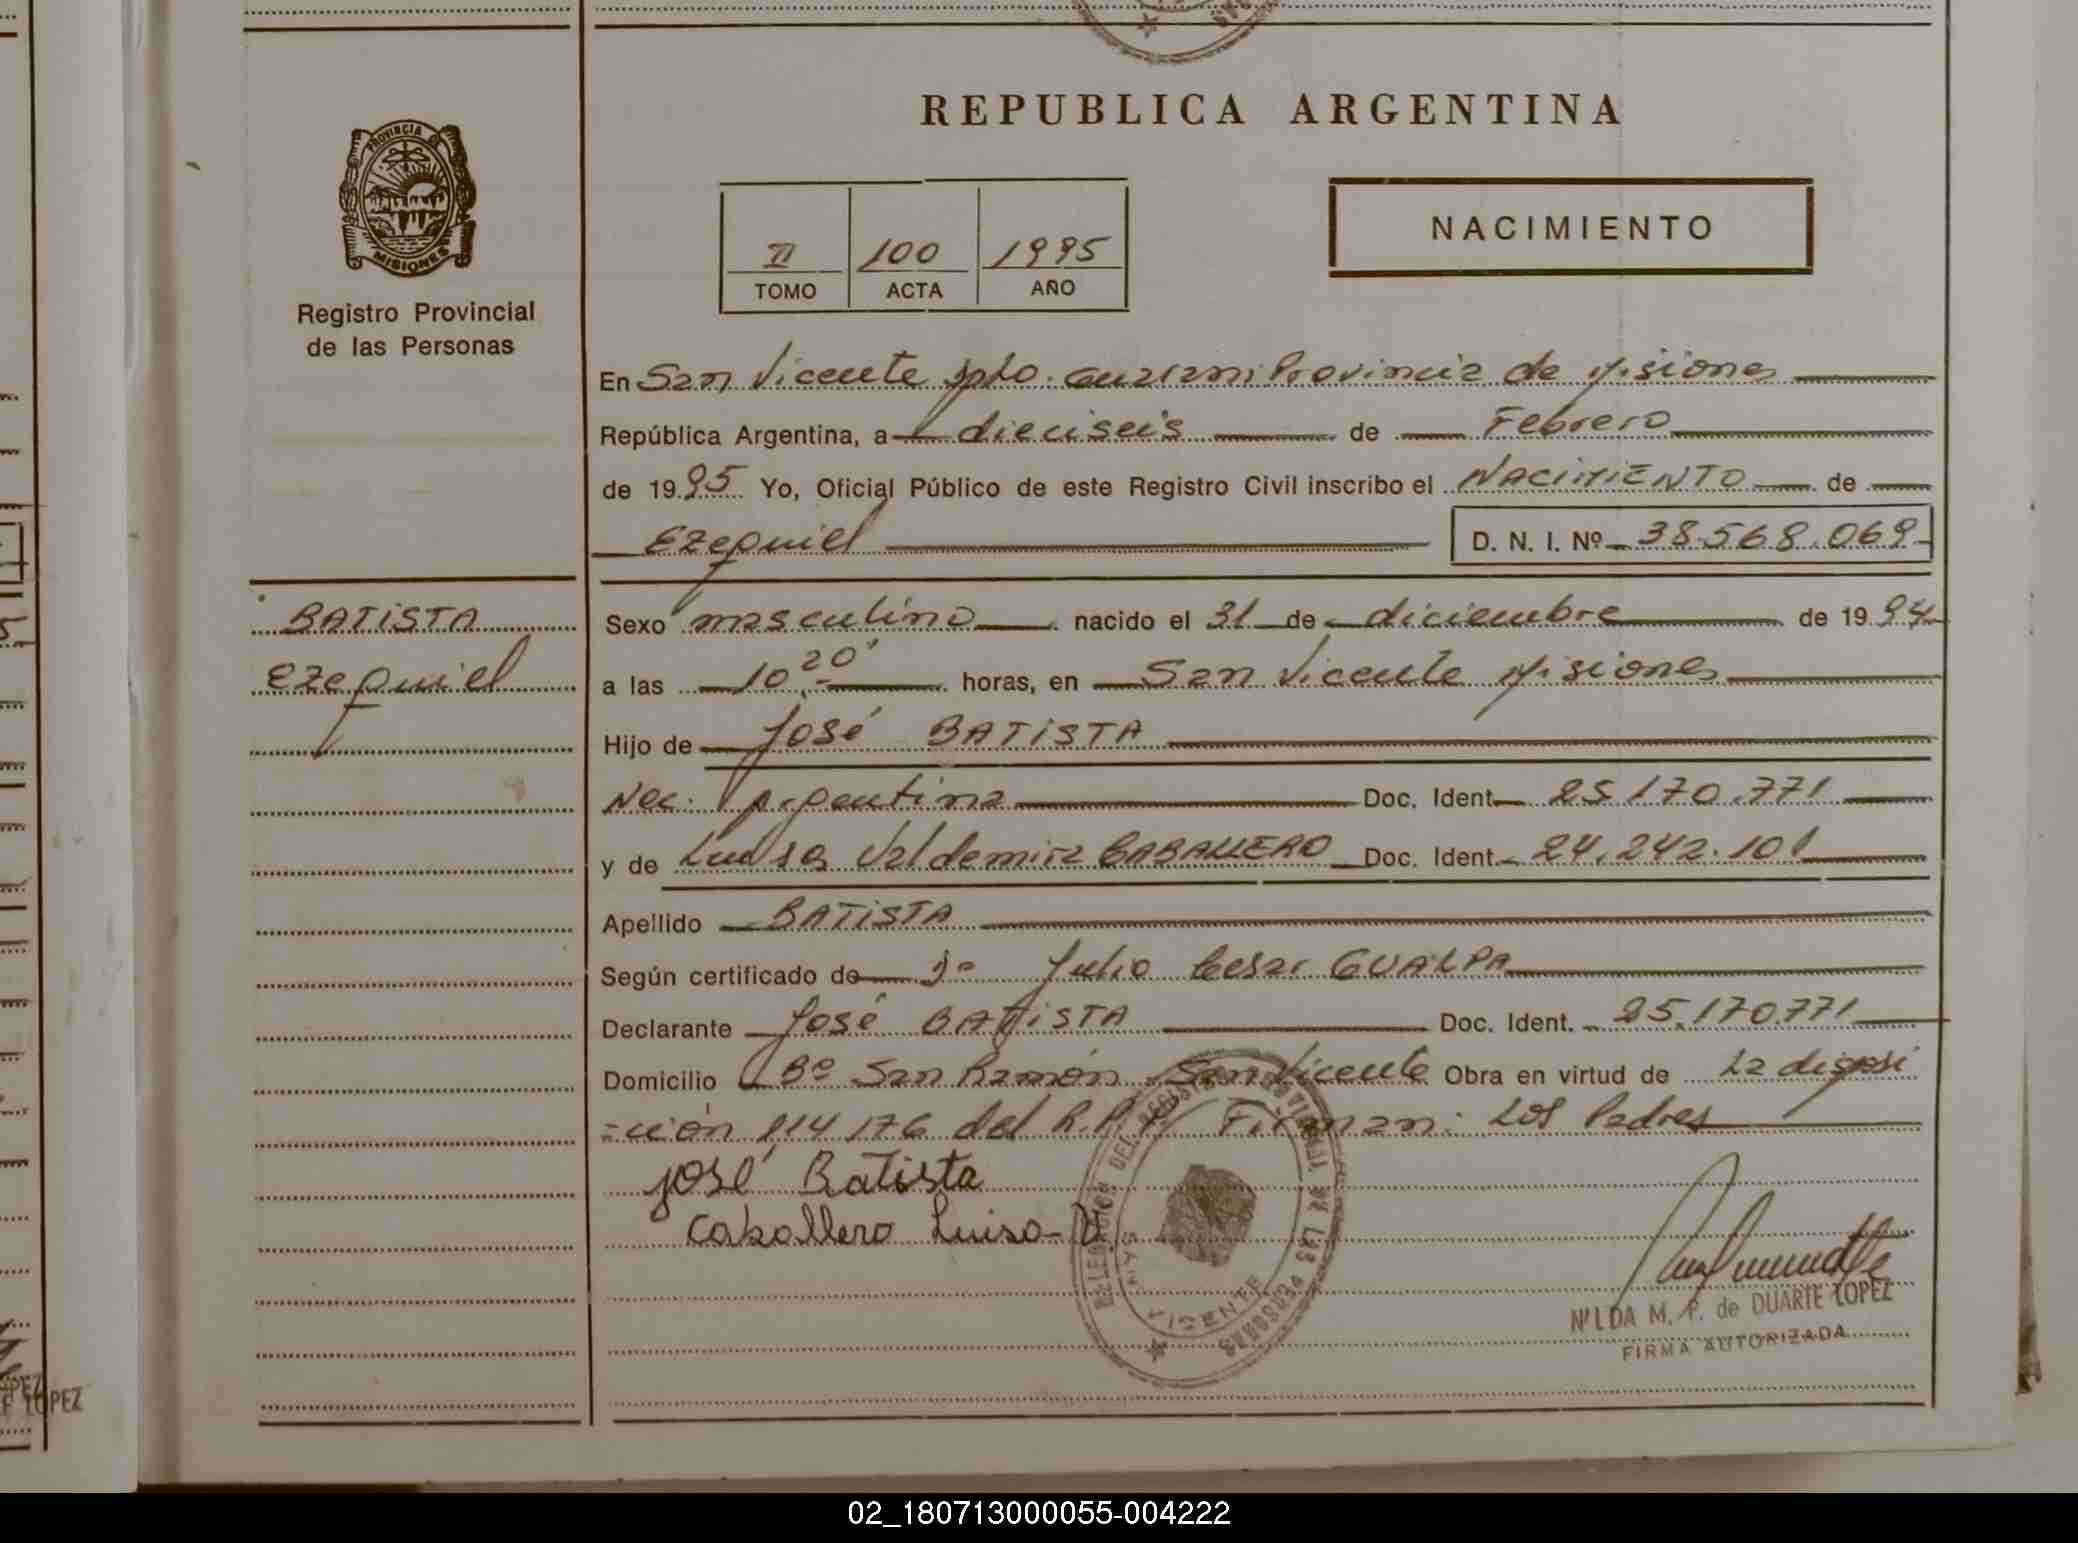 REPUBLICA ARGENTINA
PROVINCIA DE
MISIONES
Registro Provincial
de las Personas
II 100 1995
TOMO ACTA AÑO
NACIMIENTO
En San Vicente Dpto. Guarani Provincia de Misiones
República Argentina, a dieciseis de Febrero
de 1995 Yo, Oficial Público de este Registro Civil inscribo el NACIMIENTO de
Ezequiel D. N. I. Nº 38.568.069
BATISTA
Ezequiel
Sexo masculino nacido el 31 de diciembre de 1994
a las 10,20' horas, en San Vicente Misiones
Hijo de José BATISTA
Nac. Argentina Doc. Ident. 25.170.771
y de Luisa Valdemira CABALLERO Doc. Ident. 24.242.101
Apellido BATISTA
Según certificado de Julio Cesar GUALPA
Declarante José BATISTA Doc. Ident. 25.170.771
Domicilio Bº San Ramón San Vicente Obra en virtud de La disposi
=ción 114/76 del R.P.P. Firman: Los Padres
José Batista
Caballero Luisa V.
DELEGACION DEL REGISTRO PROVINCIAL DE LAS PERSONAS
SAN VICENTE
NILDA M. P. de DUARTE LOPEZ
FIRMA AUTORIZADA
LOPEZ
02_180713000055-004222